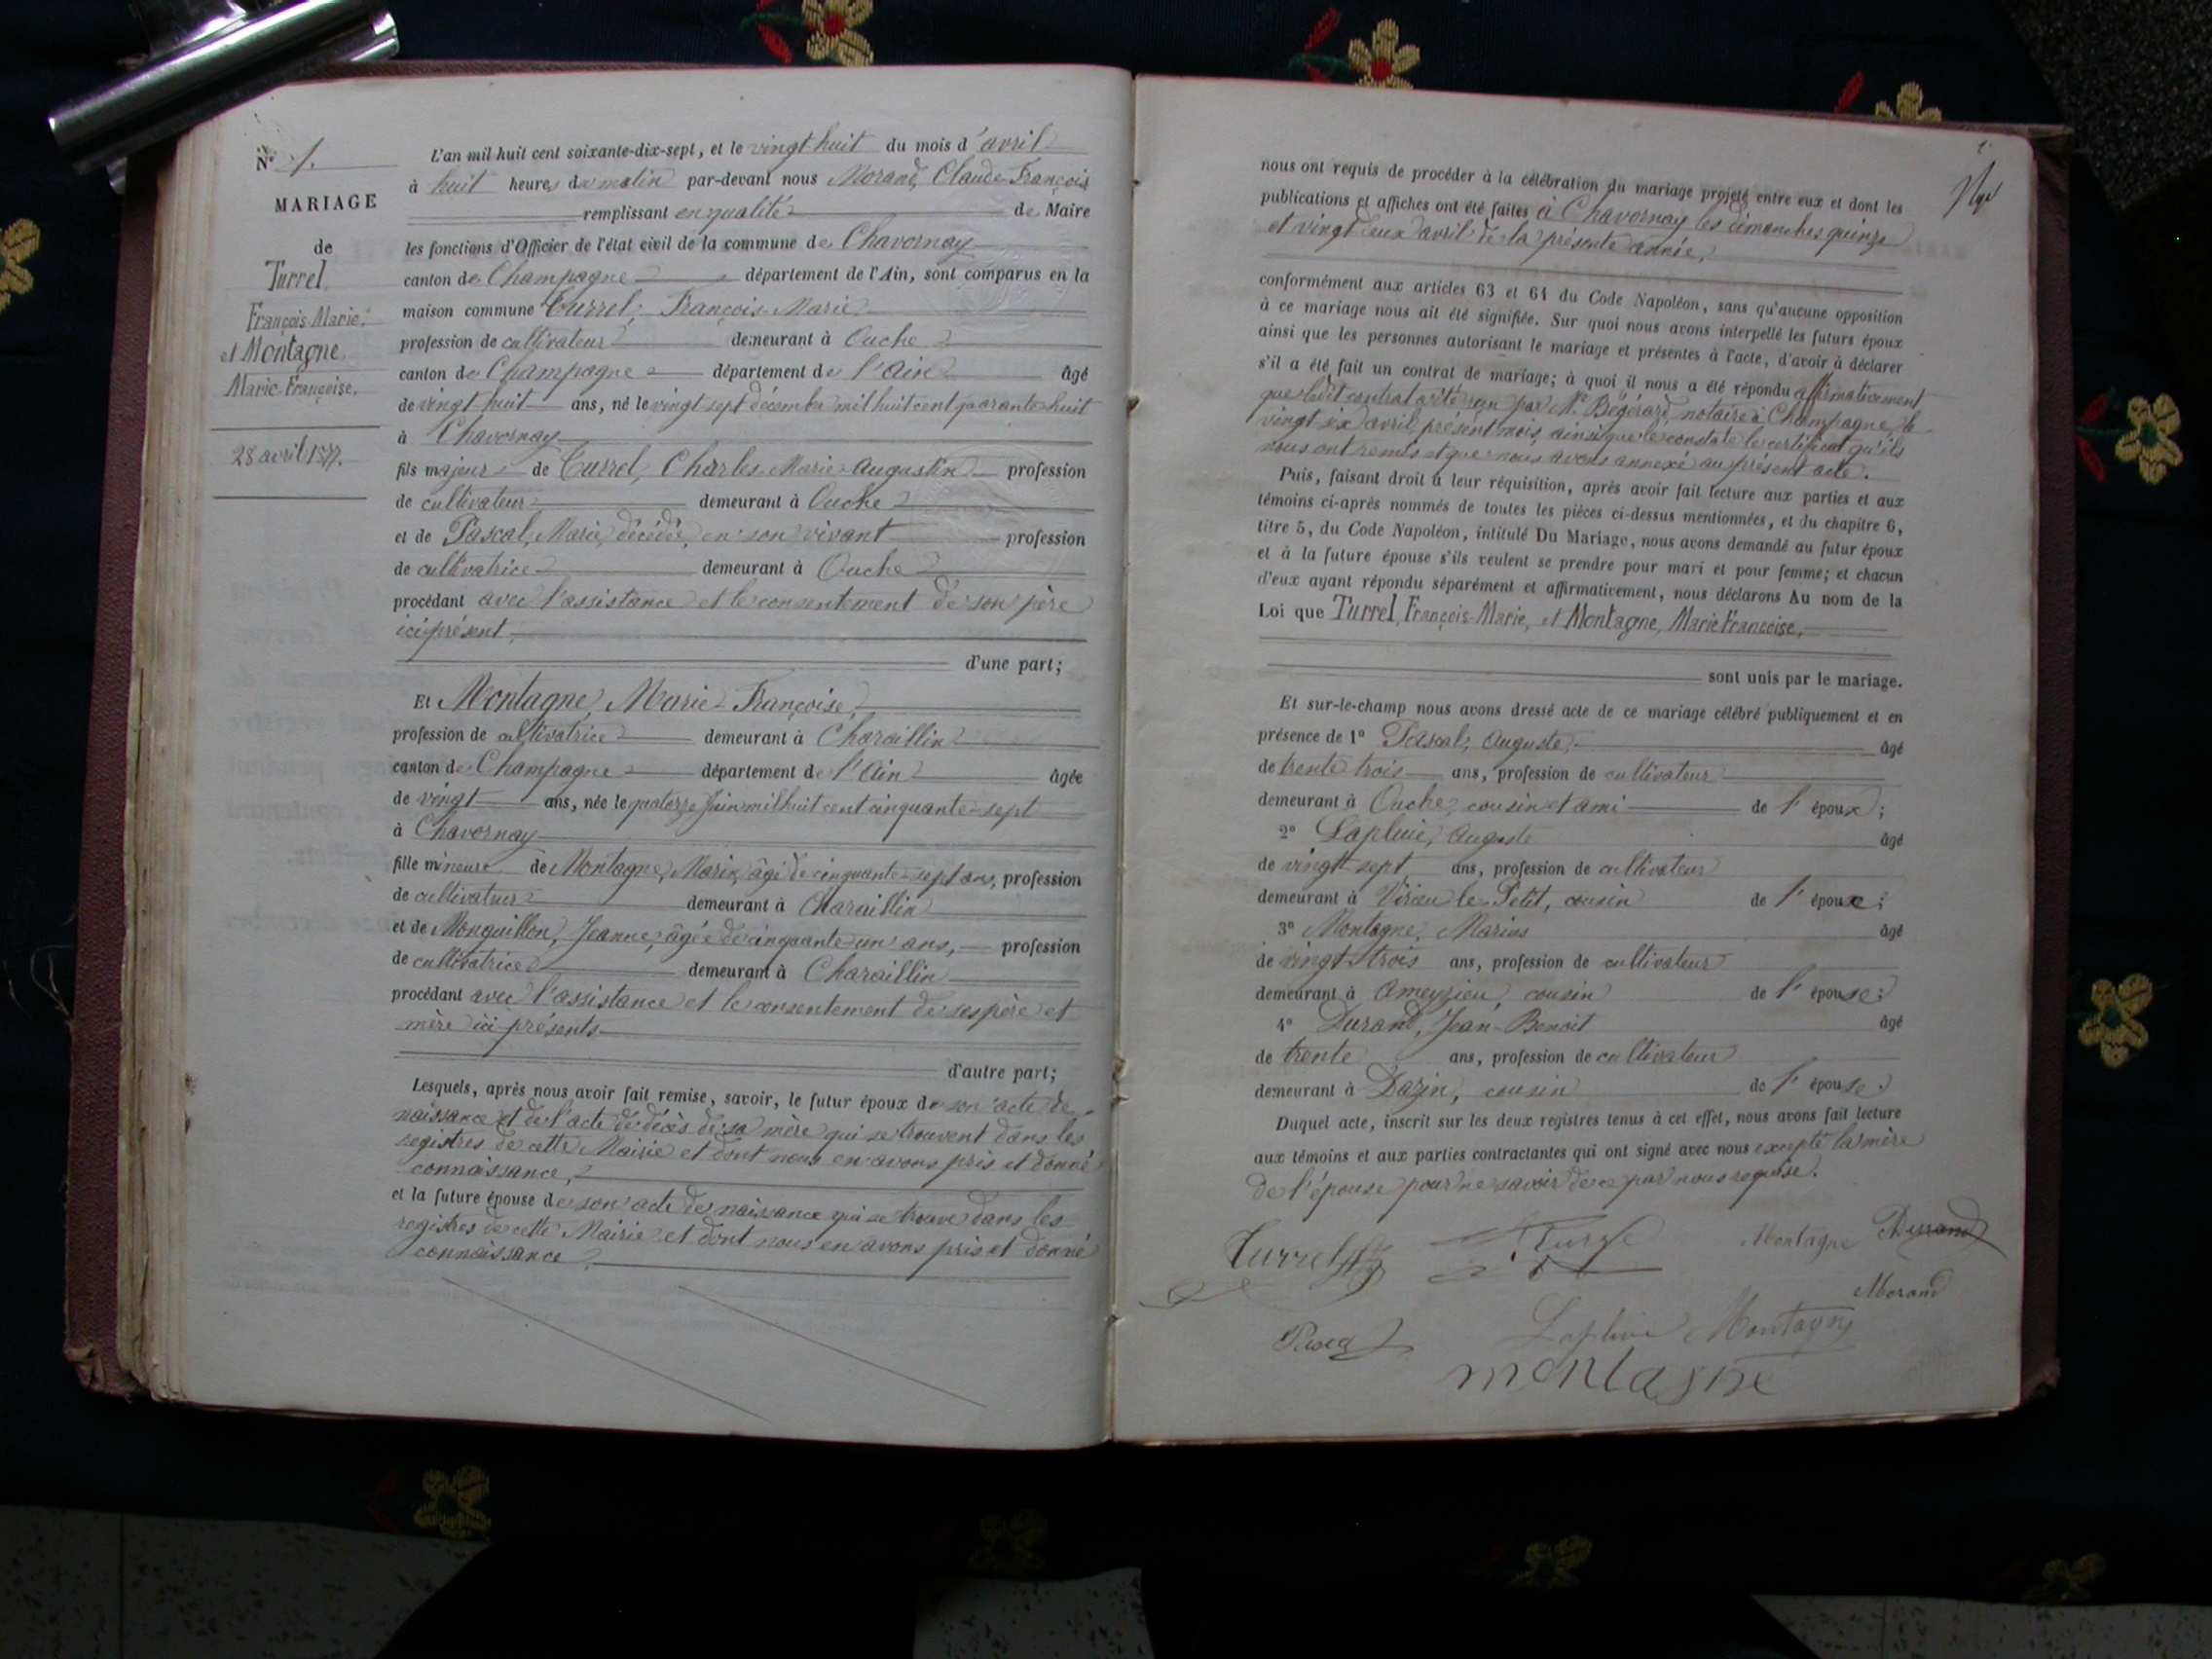 N° 1.
MARIAGE
de
Turrel
François-Marie
et Montagne
Marie-Françoise.
28 avril 1877.
L'an mil huit cent soixante-dix-sept, et le vingt-huit du mois d'avril
à huit heures du matin par-devant nous Morand, Claude-François
remplissant en qualité de Maire
les fonctions d'Officier de l'état civil de la commune de Chavornay
canton de Champagne département de l'Ain, sont comparus en la
maison commune Turrel, François-Marie
profession de cultivateur demeurant à Ouche
canton de Champagne département de l'Ain âgé
de vingt-huit ans, né le vingt-sept décembre mil huit cent quarante-huit
à Chavornay
fils majeur de Turrel, Charles-Marie-Augustin profession
de cultivateur demeurant à Ouche
et de Pascal, Marie, décédée, en son vivant profession
de cultivatrice demeurant à Ouche
procédant avec l'assistance et le consentement de son père
ici présent,
d'une part;
Et Montagne, Marie-Françoise,
profession de cultivatrice demeurant à Charaillin
canton de Champagne département de l'Ain âgée
de vingt ans, née le quatorze Juin mil huit cent cinquante-sept
à Chavornay
fille mineure de Montagne, Marin, âgé de cinquante-sept ans, profession
de cultivateur demeurant à Charaillin
et de Monguillon, Jeanne, âgée de cinquante-un ans, profession
de cultivatrice demeurant à Charaillin
procédant avec l'assistance et le consentement de ses père et
mère ici présents
d'autre part;
Lesquels, après nous avoir fait remise, savoir, le futur époux de son acte de
naissance et de l'acte de décès de sa mère qui se trouvent dans les
registres de cette Mairie et dont nous en avons pris et donné
connaissance,
et la future épouse de son acte de naissance qui se trouve dans les
registres de cette Mairie et dont nous en avons pris et donné
connaissance
nous ont requis de procéder à la célébration du mariage projeté entre eux et dont les
publications et affiches ont été faites à Chavornay les dimanches quinze
et vingt-deux avril de la présente année,
conformément aux articles 63 et 64 du Code Napoléon, sans qu'aucune opposition
à ce mariage nous ait été signifiée. Sur quoi nous avons interpellé les futurs époux
ainsi que les personnes autorisant le mariage et présentes à l'acte, d'avoir à déclarer
s'il a été fait un contrat de mariage; à quoi il nous a été répondu affirmativement
que ledit contrat a été reçu par Me Bégérard, notaire à Champagne, le
vingt-six avril, présent mois, ainsi que le constate le certificat qu'ils
nous ont remis et que nous avons annexé au présent acte.
Puis, faisant droit à leur réquisition, après avoir fait lecture aux parties et aux
témoins ci-après nommés de toutes les pièces ci-dessus mentionnées, et du chapitre 6,
titre 5, du Code Napoléon, intitulé Du Mariage, nous avons demandé au futur époux
et à la future épouse s'ils veulent se prendre pour mari et pour femme; et chacun
d'eux ayant répondu séparément et affirmativement, nous déclarons Au nom de la
Loi que Turrel, François-Marie, et Montagne, Marie Françoise,
sont unis par le mariage.
Et sur-le-champ nous avons dressé acte de ce mariage célébré publiquement et en
présence de 1° Pascal, Auguste, âgé
de trente-trois ans, profession de cultivateur
demeurant à Ouche, cousin et ami de l'époux;
2° Lapluie, Auguste âgé
de vingt-sept ans, profession de cultivateur
demeurant à Virieu-le-Petit, cousin de l'époux;
3° Montagne, Marius âgé
de vingt-trois ans, profession de cultivateur
demeurant à Ameyzieu, cousin de l'épouse;
4° Durand, Jean-Benoit âgé
de trente ans, profession de cultivateur
demeurant à Dazin, cousin de l'épouse.
Duquel acte, inscrit sur les deux registres tenus à cet effet, nous avons fait lecture
aux témoins et aux parties contractantes qui ont signé avec nous excepté la mère
de l'épouse pour ne savoir de ce par nous requise.
Turrel Montagne Durand
Morand
Pascal Lapluie Montagne
montagne